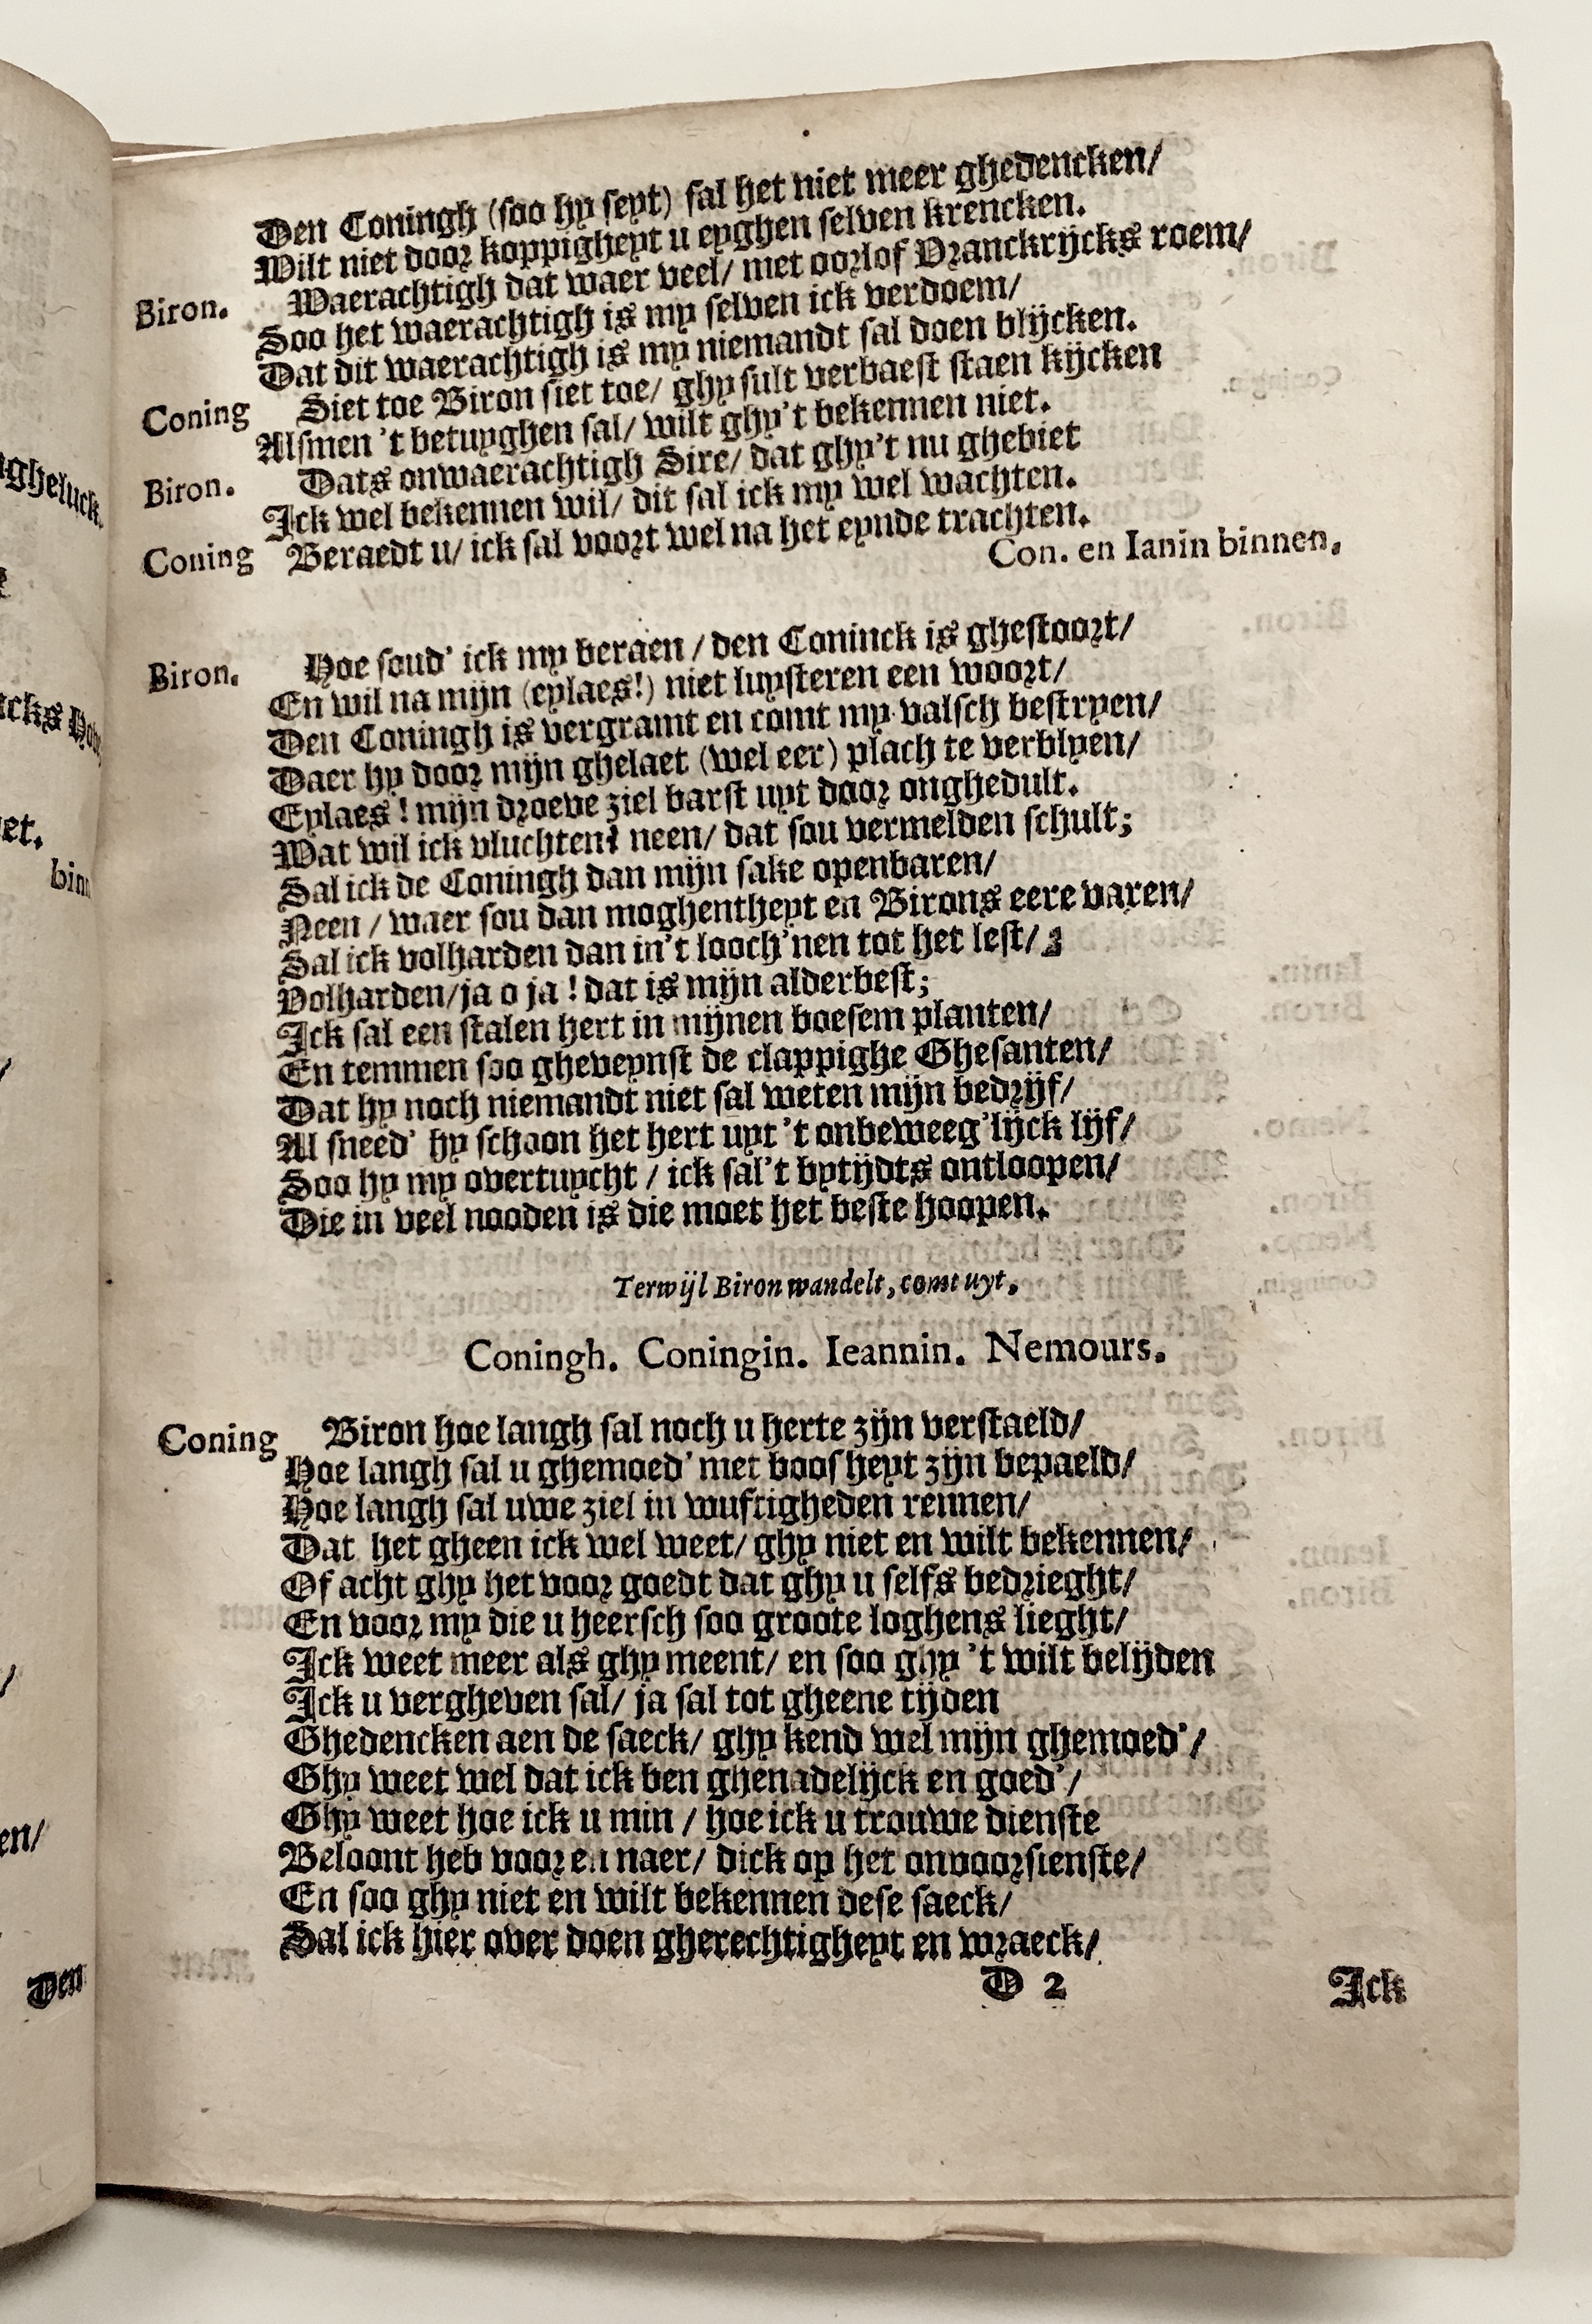 Den Coningh (soo hy seyt) sal het niet meer ghedencken/
Wilt niet door koppigheyt u eyghen selven krencken.
Biron. Waerachtigh dat waer veel/ met oorlof Vranckrijcks roem/
Soo het waerachtigh is my selven ick verdoem/
Dat dit waerachtigh is my niemandt sal doen blijcken.
Coning Siet toe Biron siet toe/ ghy sult verbaest staen kijcken
Alsmen 't betuyghen sal/ wilt ghy't bekennen niet.
Biron. Dats onwaerachtigh Sire/ dat ghy't nu ghebiet
Ick wel bekennen wil/ dit sal ick my wel wachten.
Coning Beraedt u/ ick sal voort wel na het eynde trachten.
Con. en Ianin binnen.
Biron. Hoe soud' ick my beraen / den Coninck is ghestoort/
En wil na mijn (eylaes!) niet luysteren een woort/
Den Coningh is vergramt en comt my valsch bestryen/
Daer hy door mijn ghelaet (wel eer) plach te verblyen/
Eylaes! mijn droeve ziel barst uyt door onghedult.
Wat wil ick vluchten? neen/ dat sou vermelden schult;
Sal ick de Coningh dan mijn sake openbaren/
Neen / waer sou dan moghentheyt en Birons eere varen/
Sal ick volharden dan in't looch'nen tot het lest/
Volharden/ja o ja! dat is mijn alderbest;
Ick sal een stalen hert in mijnen boesem planten/
En temmen soo gheveynst de clappighe Ghesanten/
Dat hy noch niemandt niet sal weten mijn bedrijf/
Al sneed' hy schoon het hert uyt 't onbeweeg'lijck lijf/
Soo hy my overtuycht / ick sal't bytijdts ontloopen/
Die in veel nooden is die moet het beste hoopen.
Terwijl Biron wandelt, comt uyt.
Coningh. Coningin. Ieannin. Nemours.
Coning Biron hoe langh sal noch u herte zijn verstaeld/
Hoe langh sal u ghemoed' met boosheyt zijn bepaeld/
Hoe langh sal uwe ziel in wuftigheden rennen/
Dat het gheen ick wel weet/ ghy niet en wilt bekennen/
Of acht ghy het voor goedt dat ghy u selfs bedrieght/
En voor my die u heersch soo groote loghens lieght/
Ick weet meer als ghy meent/ en soo ghy 't wilt belijden
Ick u vergheven sal/ ja sal tot gheene tijden
Ghedencken aen de saeck/ ghy kend wel mijn ghemoed'/
Ghy weet wel dat ick ben ghenadelijck en goed'/
Ghy weet hoe ick u min / hoe ick u trouwe dienste
Beloont heb voor en naer/ dick op het onvoorsienste/
En soo ghy niet en wilt bekennen dese saeck/
Sal ick hier over doen gherechtigheyt en wraeck/
D 2 Ick